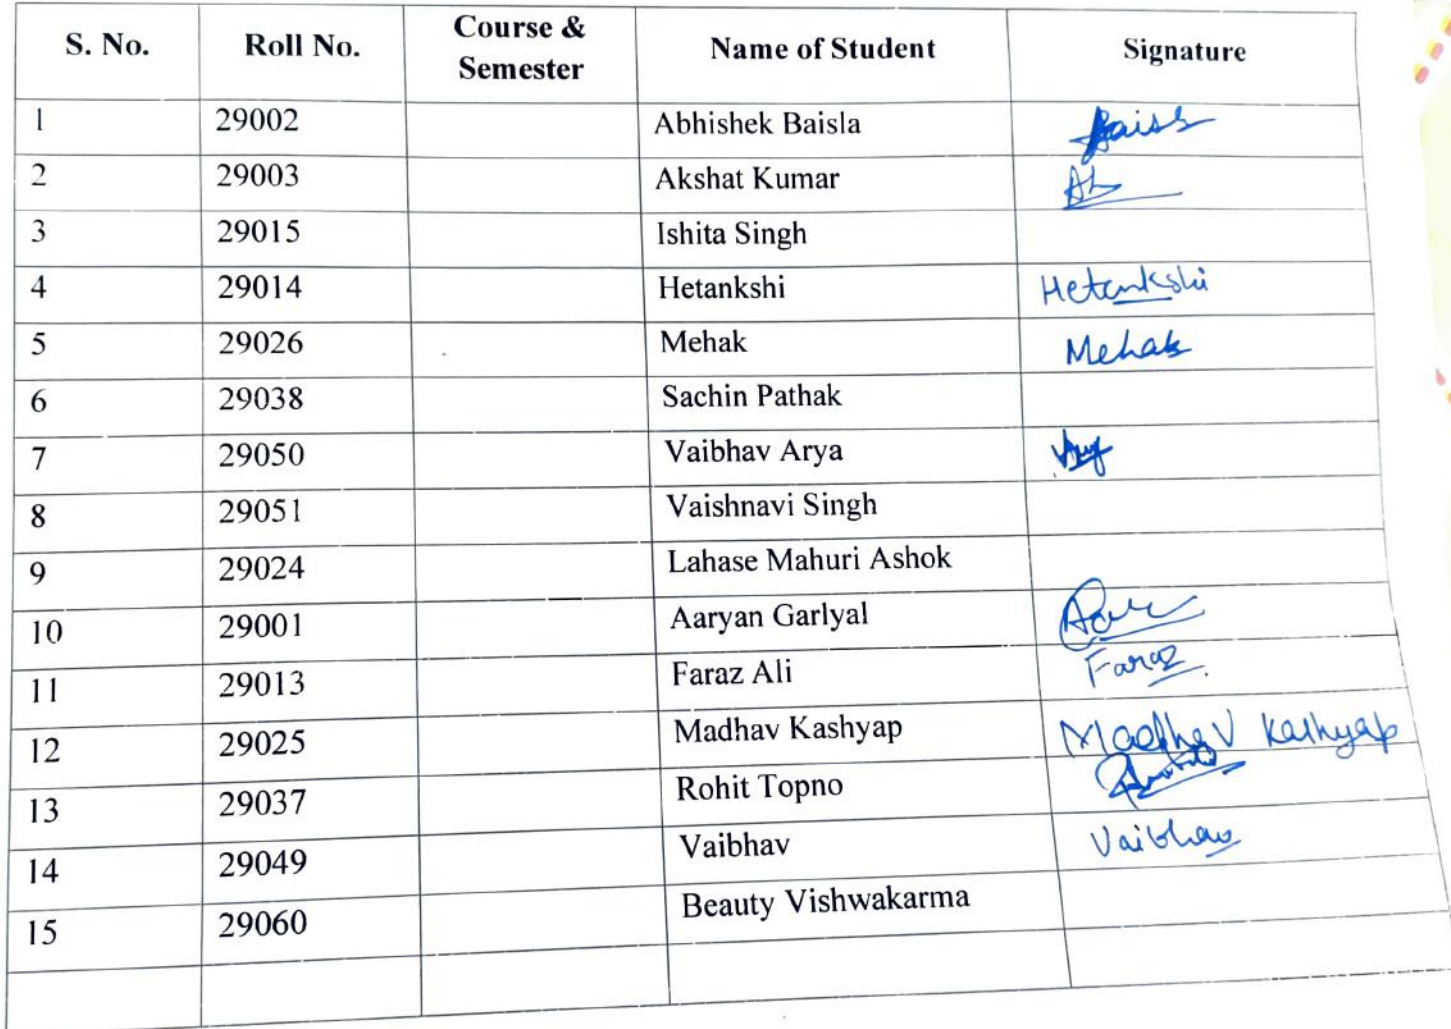 S. No. Roll No. Course & Semester Name of Student Signature
1 29002 Abhishek Baisla
2 29003 Akshat Kumar
3 29015 Ishita Singh
4 29014 Hetankshi Hetankshi
5 29026 Mehak Mehak
6 29038 Sachin Pathak
7 29050 Vaibhav Arya
8 29051 Vaishnavi Singh
9 29024 Lahase Mahuri Ashok
10 29001 Aaryan Garlyal
11 29013 Faraz Ali Faraz
12 29025 Madhav Kashyap Madhav Kashyap
13 29037 Rohit Topno
14 29049 Vaibhav Vaibhav
15 29060 Beauty Vishwakarma